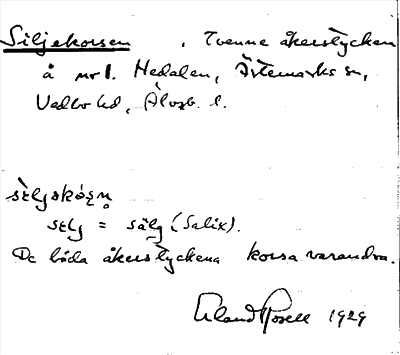 Siljekorsen , Tvenne åkerstycken
å nr 1. Hedalen, Ärtemarks sn,
Vedbo hd, Älvsb. l.
sɛljskɔ́ʂn̥
sɛlj = sälg (Salix).
De båda åkerstyckena korsa varandra.
Erland Rosell 1929